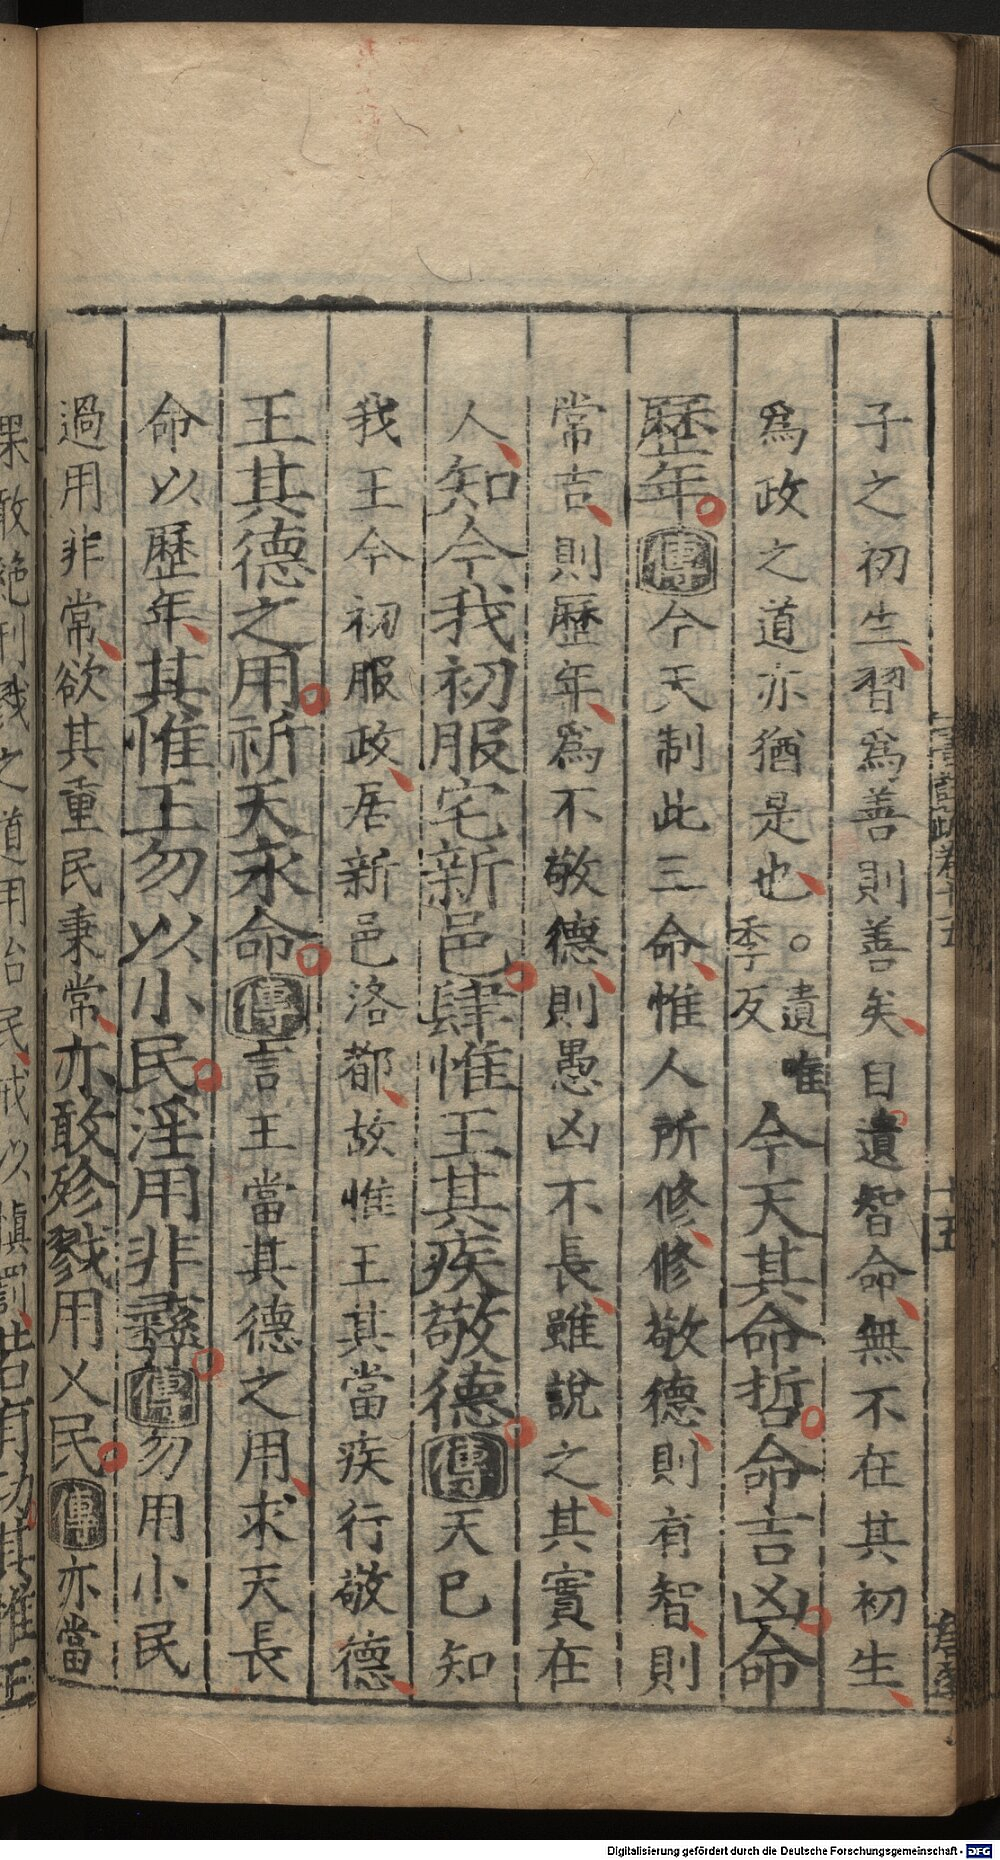 子之初生習爲善則善矣自遺智命無不在其初生
爲政之道亦猶是也○遺唯季反今天其命哲命吉凶命
歷年傳今天制此三命惟人所修修敬德則有智則
常吉則歷年爲不敬德則愚凶不長雖說之其實在
人知今我初服宅新邑肆惟王其疾敬德傳天已知
我王今初服政居新邑洛都故惟王其當疾行敬德
王其德之用祈天永命傳言王當其德之用求天長
命以歷年其惟王勿以小民淫用非彝傳勿用小民
過用非常欲其重民秉常亦敢殄戮用乂民傳亦當
果敢絕刑戮之道用治民戒以慎罰若有功其惟王
Digitalisierung gefördert durch die Deutsche Forschungsgemeinschaft - DFG